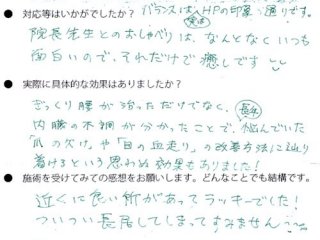 ● 対応等はいかがでしたか？ バランスは入HPの印象通りです。
院長先生とのおしゃべりは、なんとなくいつも
面白いので、それだけで癒しです
● 実際に具体的な効果はありましたか？
ぎっくり腰が治っただけでなく、長年
内臓の不調が分かったことで、悩んでいた
「爪の欠け」や「目の血走り」の改善方法に辿り
着けるという思わぬ効果もありました！
● 施術を受けてみての感想をお願いします。どんなことでも結構です。
近くに良い所があってラッキーでした！
ついつい長居してしまってすみません